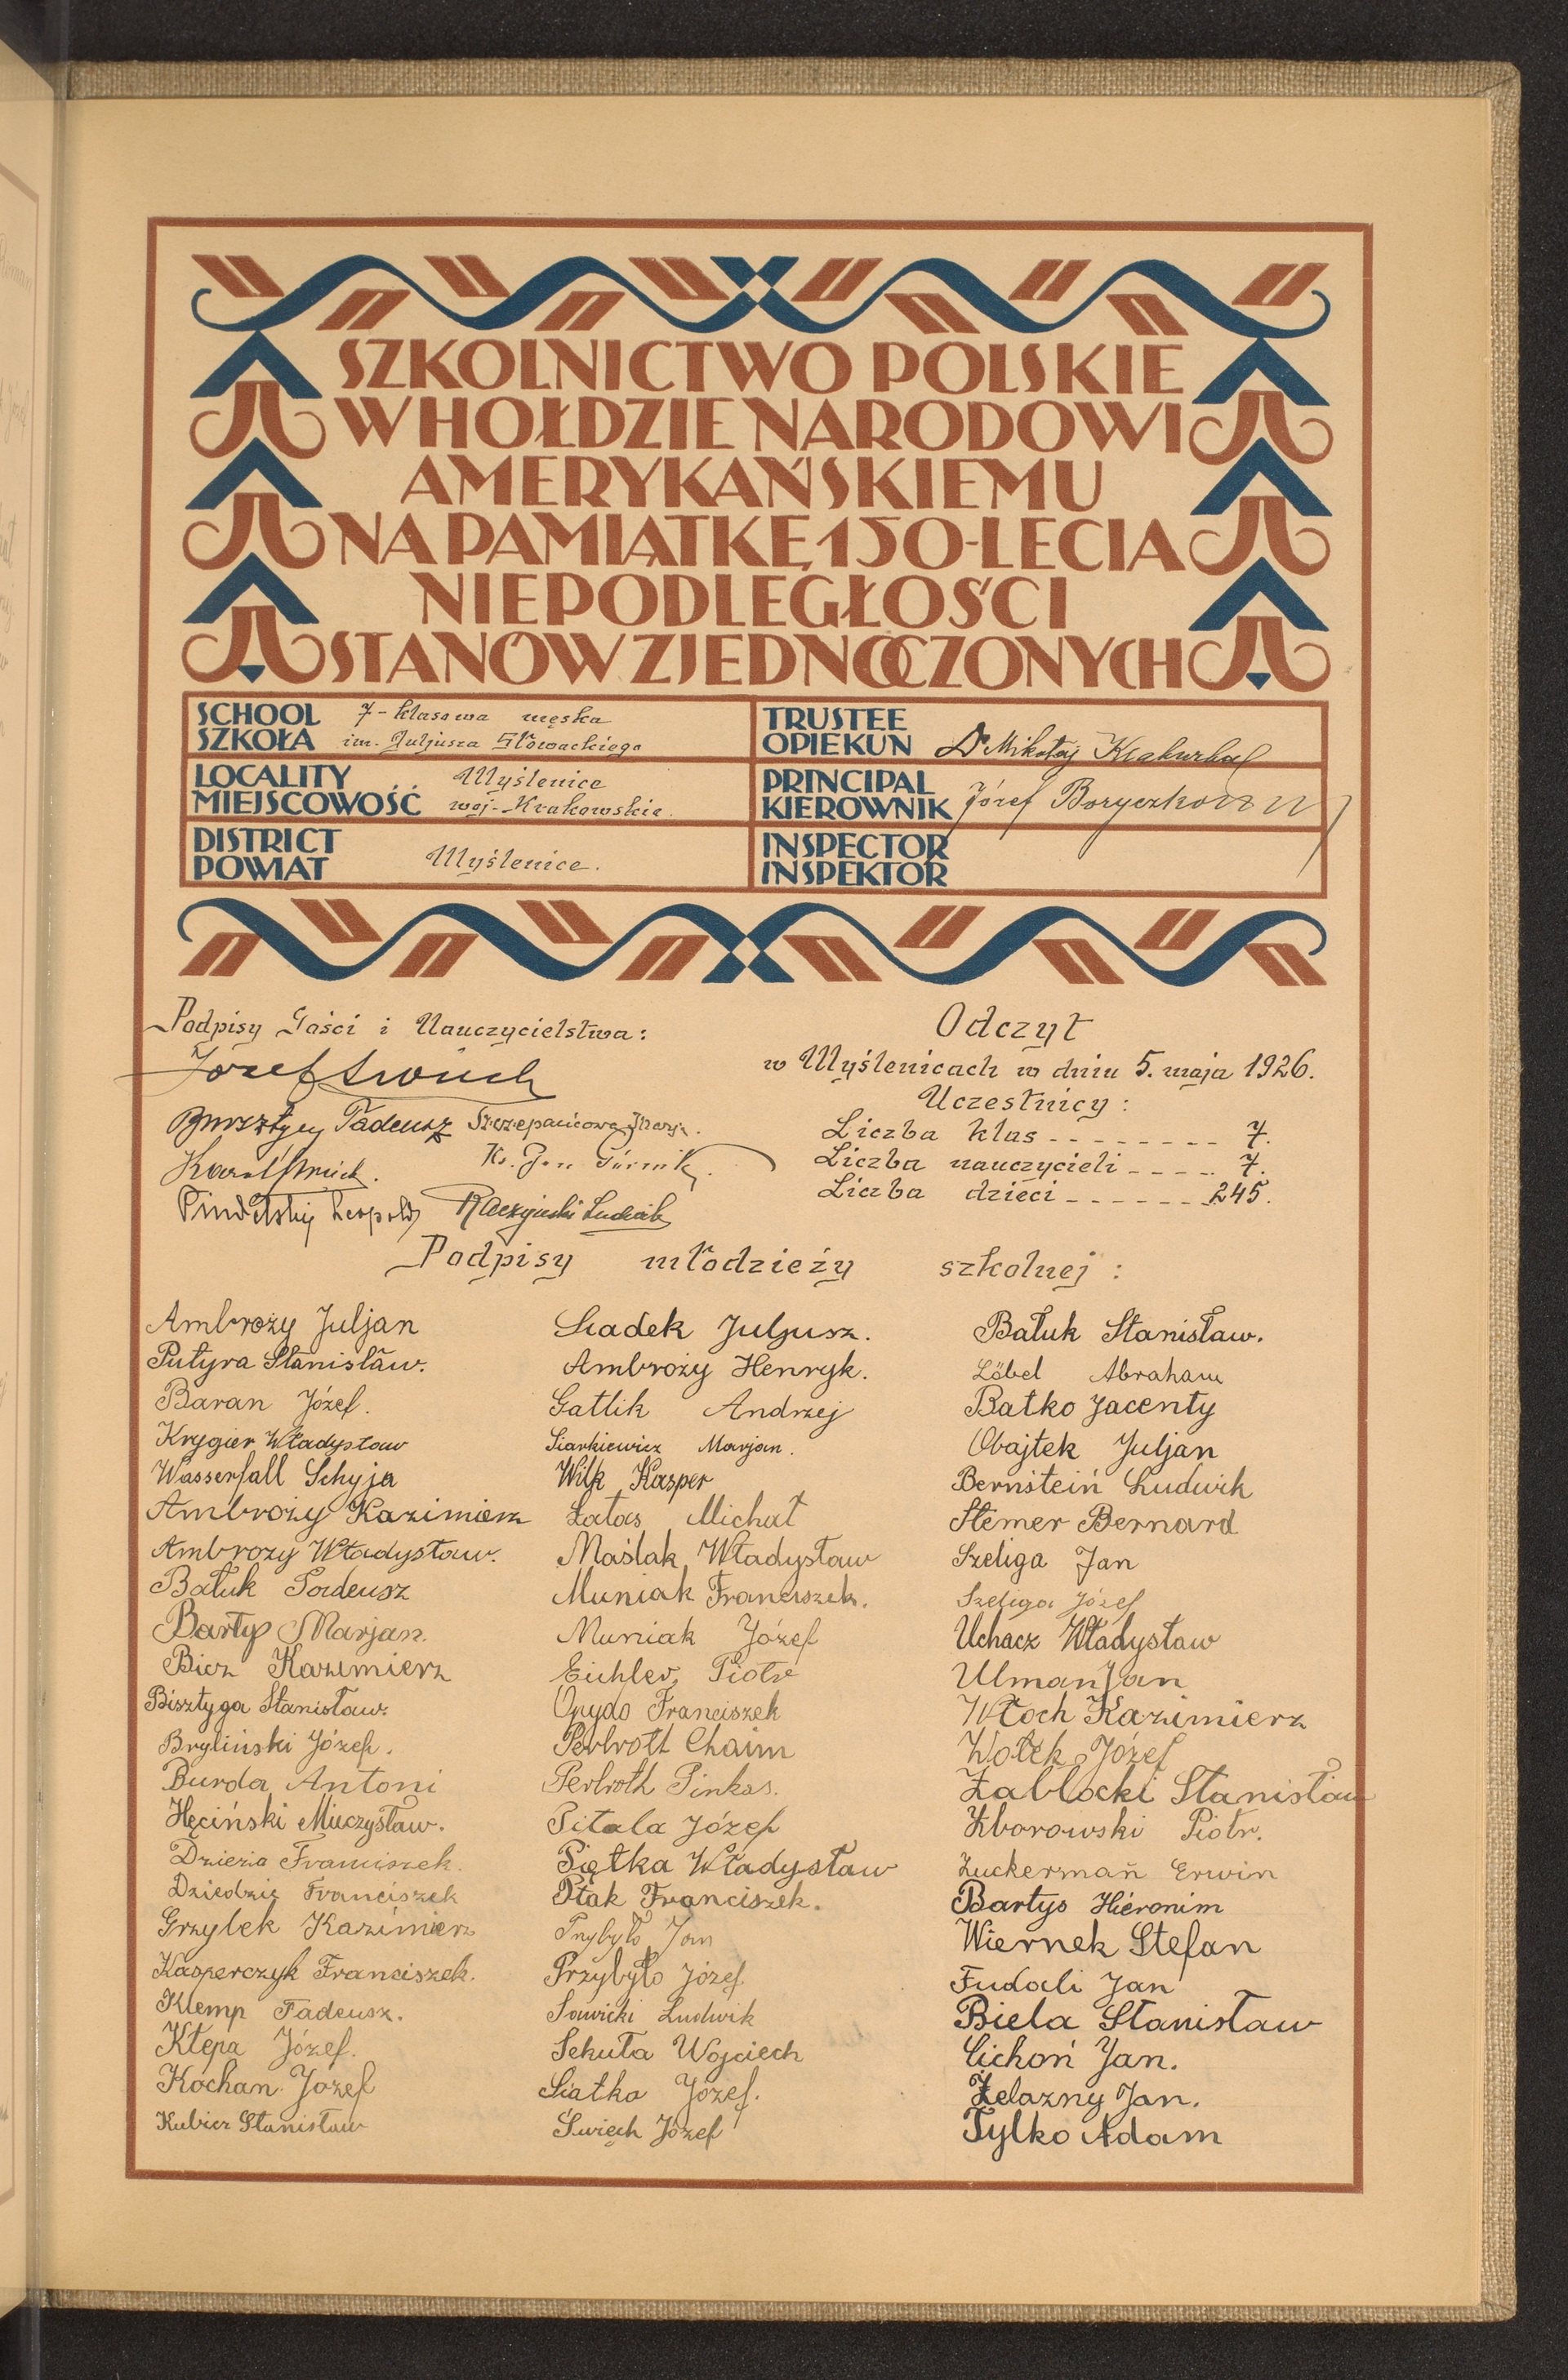 SZKOLNICTWO POLSKIE
W HOŁDZIE NARODOWI
AMERYKAŃSKIEMU
NA PAMIĄTKĘ 150-LECIA
NIEPODLEGŁOŚCI
STANÓW ZJEDNOCZONYCH
SCHOOL
SZKOŁA
7-klasowa męska
im. Juljusza Słowackiego
TRUSTEE
OPIEKUN
Dr Mikołaj
LOCALITY
MIEJSCOWOŚĆ
Myślenice
woj. Krakowskie.
PRINCIPAL
KIEROWNIK
Józef
DISTRICT
POWIAT
Myślenice.
INSPECTOR
INSPEKTOR
Podpisy Gości i Nauczycielstwa:
Józef
Tadeusz Szczepańcowa
Karol
Ks. Jan Górnik.
Leopold Raczyński Ludwik
Odczyt
w Myślenicach w dniu 5. maja 1926.
Uczestnicy:
Liczba klas - - - - - - - - 7.
Liczba nauczycieli - - - - - 7.
Liczba dzieci - - - - - - 245.
Podpisy młodzieży szkolnej:
Ambroży Juljan
Putyra Stanisław.
Baran Józef.
Krygier Władysław
Wasserfall Schyja
Ambroży Kazimierz
Ambroży Władysław.
Bałuk Tadeusz
Bartys Marjan.
Bicz Kazimierz
Bisztyga Stanisław.
Bryliński Józef.
Burda Antoni
Hęciński Mieczysław.
Franciszek.
Dziedzic Franciszek
Grzybek Kazimierz
Kasperczyk Franciszek.
Klemp Tadeusz.
Kłepa Józef.
Kochan Józef
Kubicz Stanisław
Siadek Juljusz.
Ambroży Henryk.
Gatlik Andrzej
Siarkiewicz Marjan.
Wilk Kasper
Łatas Michał
Maślak Władysław
Muniak Franciszek.
Muniak Józef
Eichler Piotr
Opydo Franciszek
Perlrott Chaim
Perlroth Pinkas.
Pitala Józef
Piętka Władysław
Ptak Franciszek.
Przybyło Jan
Przybyło Józef.
Sawicki Ludwik
Sekuła Wojciech
Siatka Józef.
Święch Józef
Bałuk Stanisław.
Löbel Abraham
Batko Jacenty
Obajtek Juljan
Bernstein Ludwik
Stemer Bernard
Szeliga Jan
Szeliga Józef
Uchacz Władysław
Ulman Jan
Włoch Kazimierz
Wołek Józef
Zabłocki Stanisław
Zborowski Piotr.
Zuckermań Erwin
Bartys Hieronim
Wiernek Stefan
Fudali Jan
Biela Stanisław
Cichoń Jan.
Żelazny Jan.
Tylko Adam